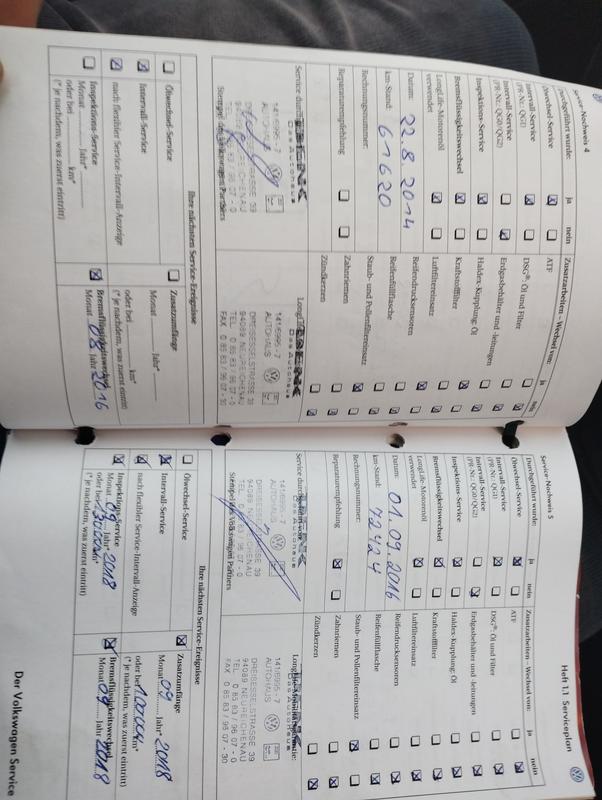 Service-Nachweis 4
Durchgeführt wurde: ja nein
Ölwechsel-Service
Intervall-Service
(PR-Nr.: QG1)
Intervall-Service
(PR-Nr.: QG0/QG2)
Inspektions-Service
Bremsflüssigkeitswechsel
LongLife-Motorenöl
verwendet
Datum: 22.8 2014
km-Stand: 61620
Rechnungsnummer:
Reparaturempfehlung
Service durch
Stempel des Volkswagen Partners
Zusatzarbeiten – Wechsel von: ja nein
ATF
DSG®: Öl und Filter
Erdgasbehälter und -leitungen
Haldex-Kupplung: Öl
Kraftstofffilter
Luftfiltereinsatz
Reifendrucksensoren
Reifenfüllflasche
Staub- und Pollenfiltereinsatz
Zahnriemen
Zündkerzen
Das Autohaus
141/6995-7
AUTOHAUS
DREISESSELSTRASSE 39
94089 NEUREICHENAU
TEL. 0 85 83 / 96 07 - 0
FAX 0 85 83 / 96 07 - 30
Ihre nächsten Service-Ereignisse
Ölwechsel-Service
Intervall-Service
nach flexibler Service-Intervall-Anzeige
Inspektions-Service
Monat Jahr*
oder bei km*
(* je nachdem, was zuerst eintritt)
Zusatzumfänge
Monat Jahr*
oder bei km*
(* je nachdem, was zuerst eintritt)
Bremsflüssigkeitswechsel
Monat 08 Jahr 2016
Heft 1.1 Serviceplan
Service-Nachweis 5
Durchgeführt wurde: ja nein
Ölwechsel-Service
Intervall-Service
(PR-Nr.: QG1)
Intervall-Service
(PR-Nr.: QG0/QG2)
Inspektions-Service
Bremsflüssigkeitswechsel
LongLife-Motorenöl
verwendet
Datum: 01.09.2016
km-Stand: 72424
Rechnungsnummer:
Reparaturempfehlung
Service durch
Stempel des Volkswagen Partners
Zusatzarbeiten – Wechsel von: ja nein
ATF
DSG®: Öl und Filter
Erdgasbehälter und -leitungen
Haldex-Kupplung: Öl
Kraftstofffilter
Luftfiltereinsatz
Reifendrucksensoren
Reifenfüllflasche
Staub- und Pollenfiltereinsatz
Zahnriemen
Zündkerzen
141/6995-7
AUTOHAUS
DREISESSELSTRASSE 39
94089 NEUREICHENAU
TEL. 0 85 83 / 96 07 - 0
FAX 0 85 83 / 96 07 - 30
Ihre nächsten Service-Ereignisse
Ölwechsel-Service
Intervall-Service
nach flexibler Service-Intervall-Anzeige
Inspektions-Service
Monat 09 Jahr* 2018
oder bei km*
(* je nachdem, was zuerst eintritt)
Zusatzumfänge
Monat 09 Jahr* 2018
oder bei km*
(* je nachdem, was zuerst eintritt)
Bremsflüssigkeitswechsel
Monat 09 Jahr 2018
Der Volkswagen Service